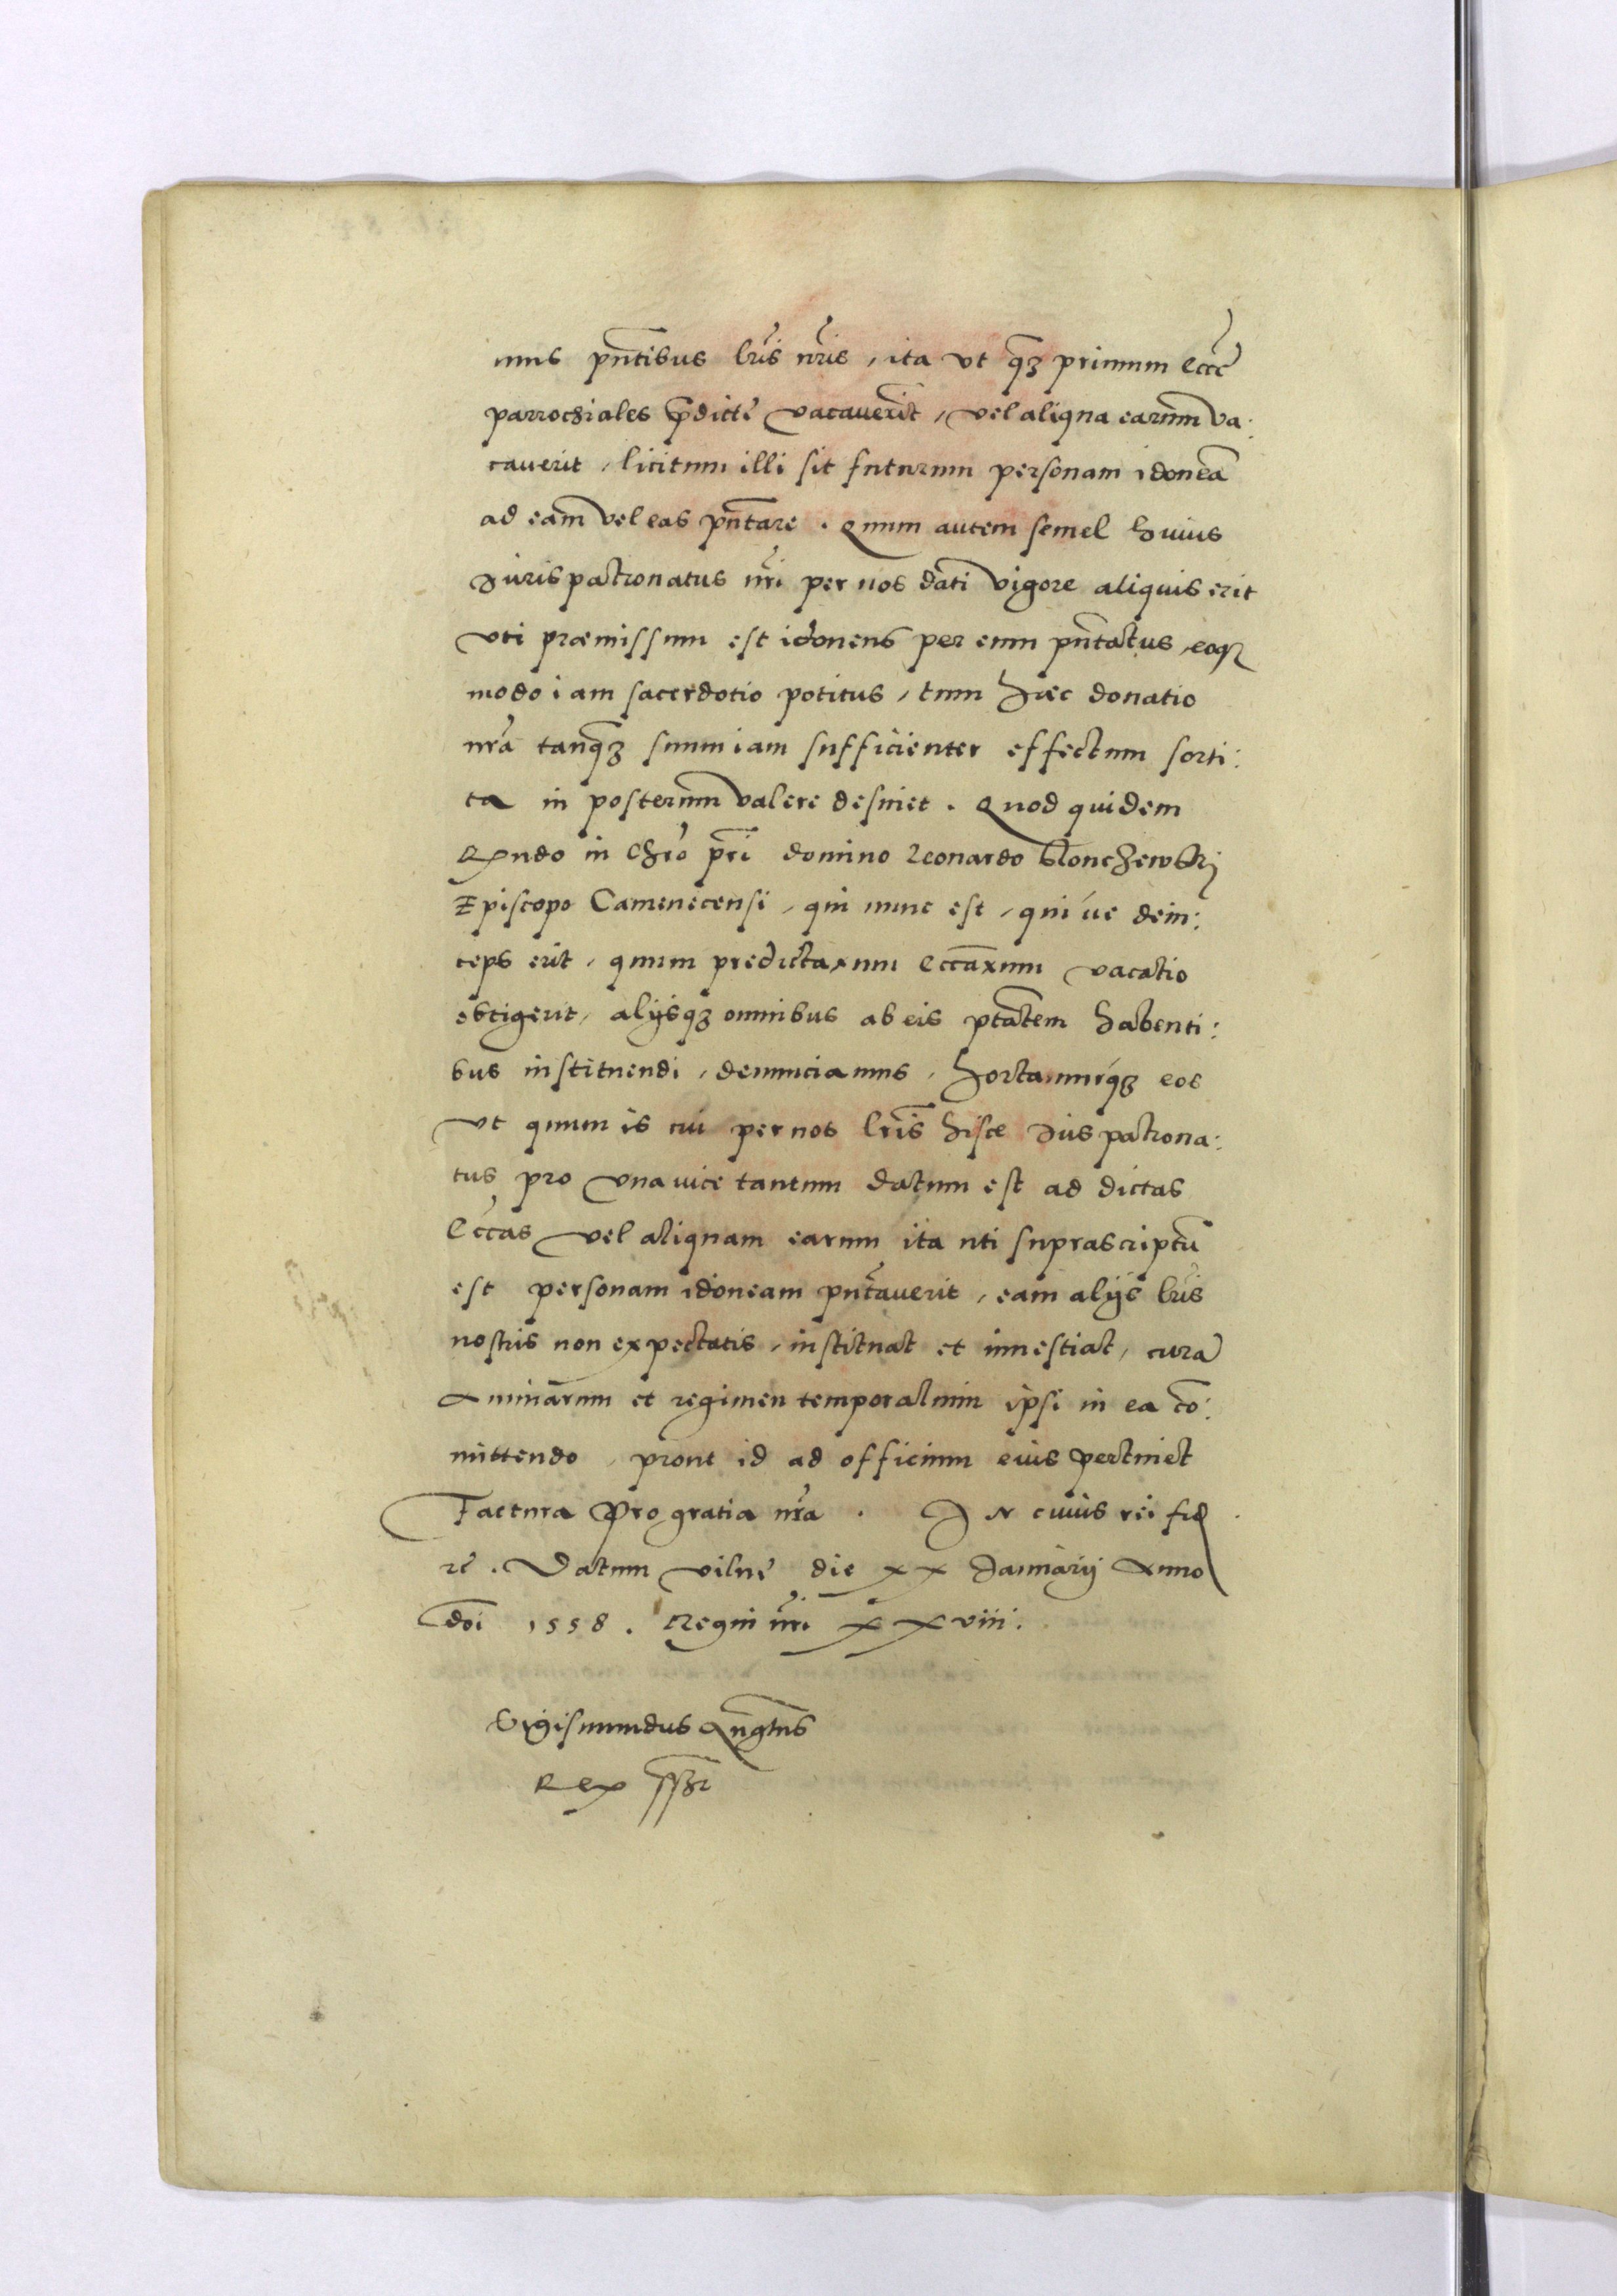 mus pñtibus lr̃is nr̃is, ita vt q̃ꝫ primum eccẽ
parrochiales p̃dictę vacauerĩt, vel aliqua earum̃ va:
cauerit, licitum illi sit futurum personam idoneã
ad eam̃ vel eas pñtare. Quum autem semel huius
Iurispatronatus nr̃i per nos dati vigore aliquis erit
vti præmissum est idoneus per eum pñtatus, eoqꝫ
modo iam sacerdotio potitus, tum hæc donatio
nr̃a tanq̃ꝫ suum iam sufficienter effectum sorti:
ta in posterum̃ valere desinet. Quod quidem
Rx̃ndo in Chr̃o pr̃i domino Leonardo Slonczewskij
Episcopo Camenecensi, qui nunc est, quiúe dein:
ceps erit, quum predictarum eccãrum vacatio
obtigerit, alijsqꝫ omnibus ab eis ptãtem habenti:
bus instituendi, denunciamus, hortamúrqꝫ eos
vt quum is cui per nos lr̃is hisce Iuspatrona:
tus pro vna uice tantum datum est ad dictas
Ecc̃as vel aliquam earum ita uti suprascriptũ
est personam idoneam pñtauerit, eam alijs lr̃is
nostris non expectatis, instituat et inuestiat, curã
Animarum et regimen temporalium ipsi in ea cõ:
mittendo, prout id ad officium eius pertinet
Factura pro gratia nr̃a. IN cuius rei fid
rẽ. Datum vilnę die xx Januarij Anno
dñi 1558. Regni nr̃i xxviii.
Sigismundus Augtũs
Rex sszt